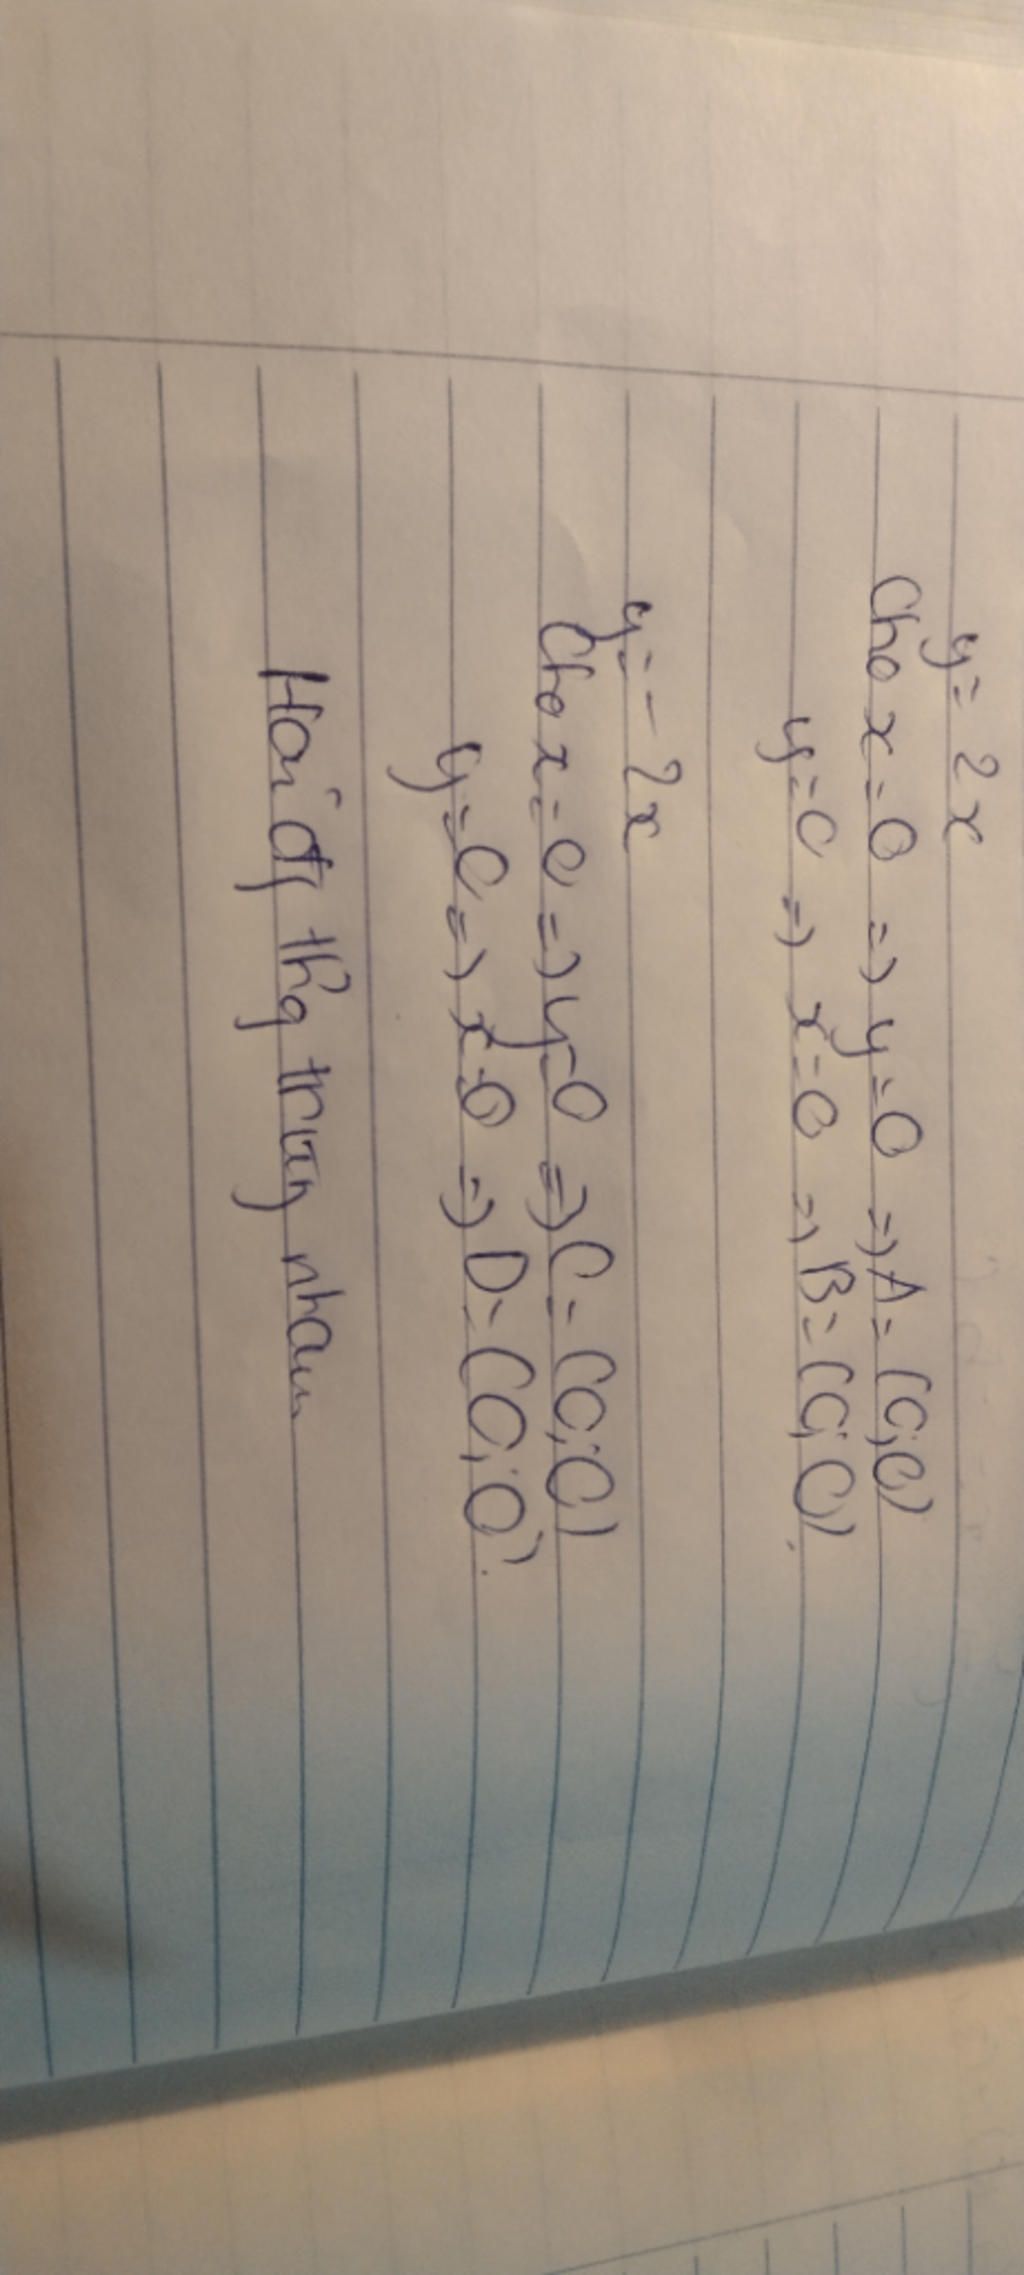 y = 2x
Cho x = 0 => y = 0 => A = (0; 0)
y = 0 => x = 0 => B = (0; 0).
y = - 2x
Cho x = 0 => y = 0 => C = (0; 0)
y = 0 => x = 0 => D = (0; 0).
Hai đg thg trùng nhau